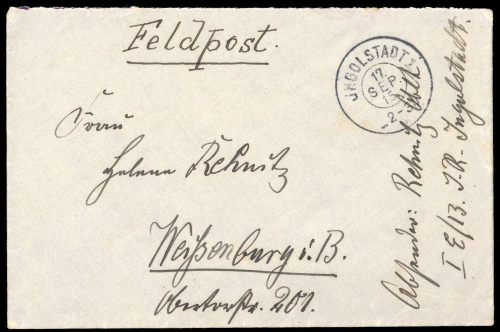 Feldpost.
INGOLSTADT 2
17.
SEP.
2-
Frau
Helene Rehnitz
Weißenburg i. B.
Obertorstr. 201.
Absender: Rehnitz
I E/13. I.R. Ingolstadt.